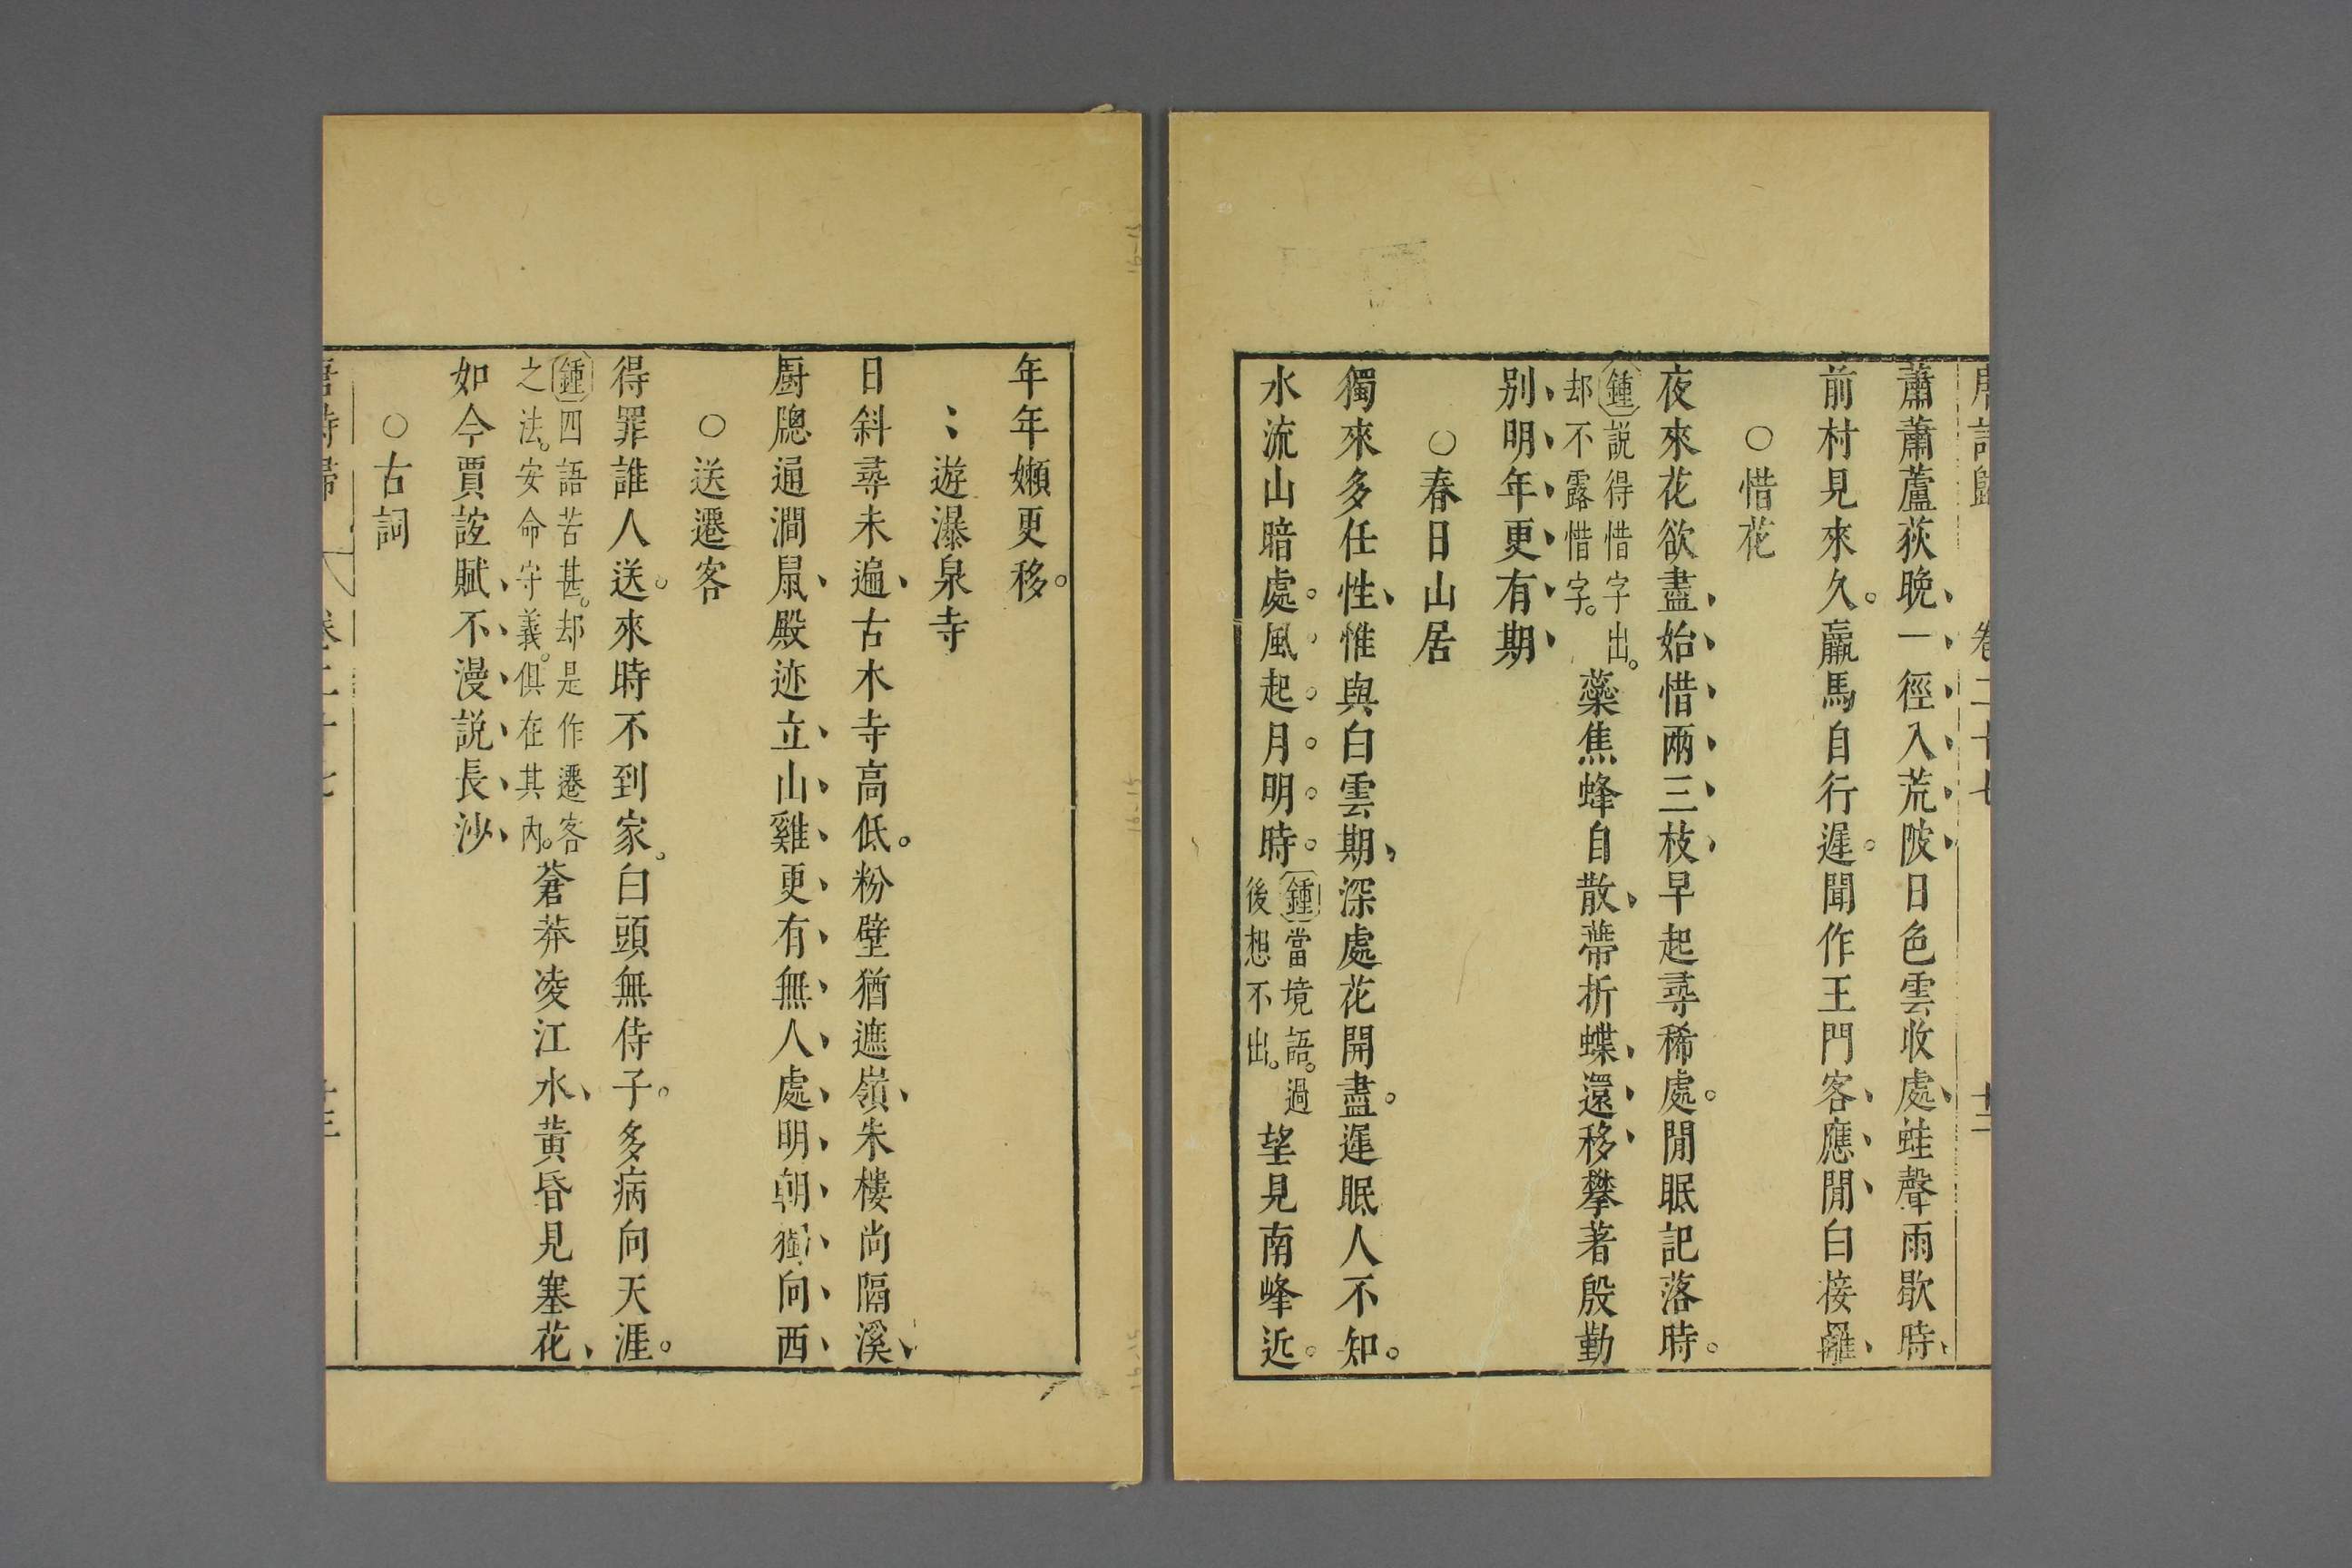 蕭蕭蘆荻晚、一徑入荒陂、日色雲收處、蛙聲雨歇時、
前村見來久。羸馬自行遲。聞作王門客、應閒白接䍦、
○惜花
夜來花欲盡、始惜兩三枝、早起尋稀處。閒眠記落時。
鍾說得惜字出。
却不露惜字。
蘂焦蜂自散、蔕折蝶還移、攀著殷勤
別、明年更有期、
○春日山居
獨來多任性、惟與白雲期、深處花開盡。遲眠人不知。
水流山暗處。風起月明時。
鍾當境語。過
後想不出。
望見南峰近。
年年嬾更移。
遊瀑泉寺
日斜尋未遍、古木寺高低。粉壁猶遮嶺、朱樓尚隔溪、
厨牕通澗鼠、殿迹立山雞、更有無人處、明朝獨向西、
○送遷客
得罪誰人送。來時不到家。白頭無侍子。多病向天涯。
鍾四語苦甚。却是作遷客
之法。安命守義。俱在其內。
蒼莽凌江水、黄昏見塞花、
如今賈誼賦、不漫說長沙、
○古詞